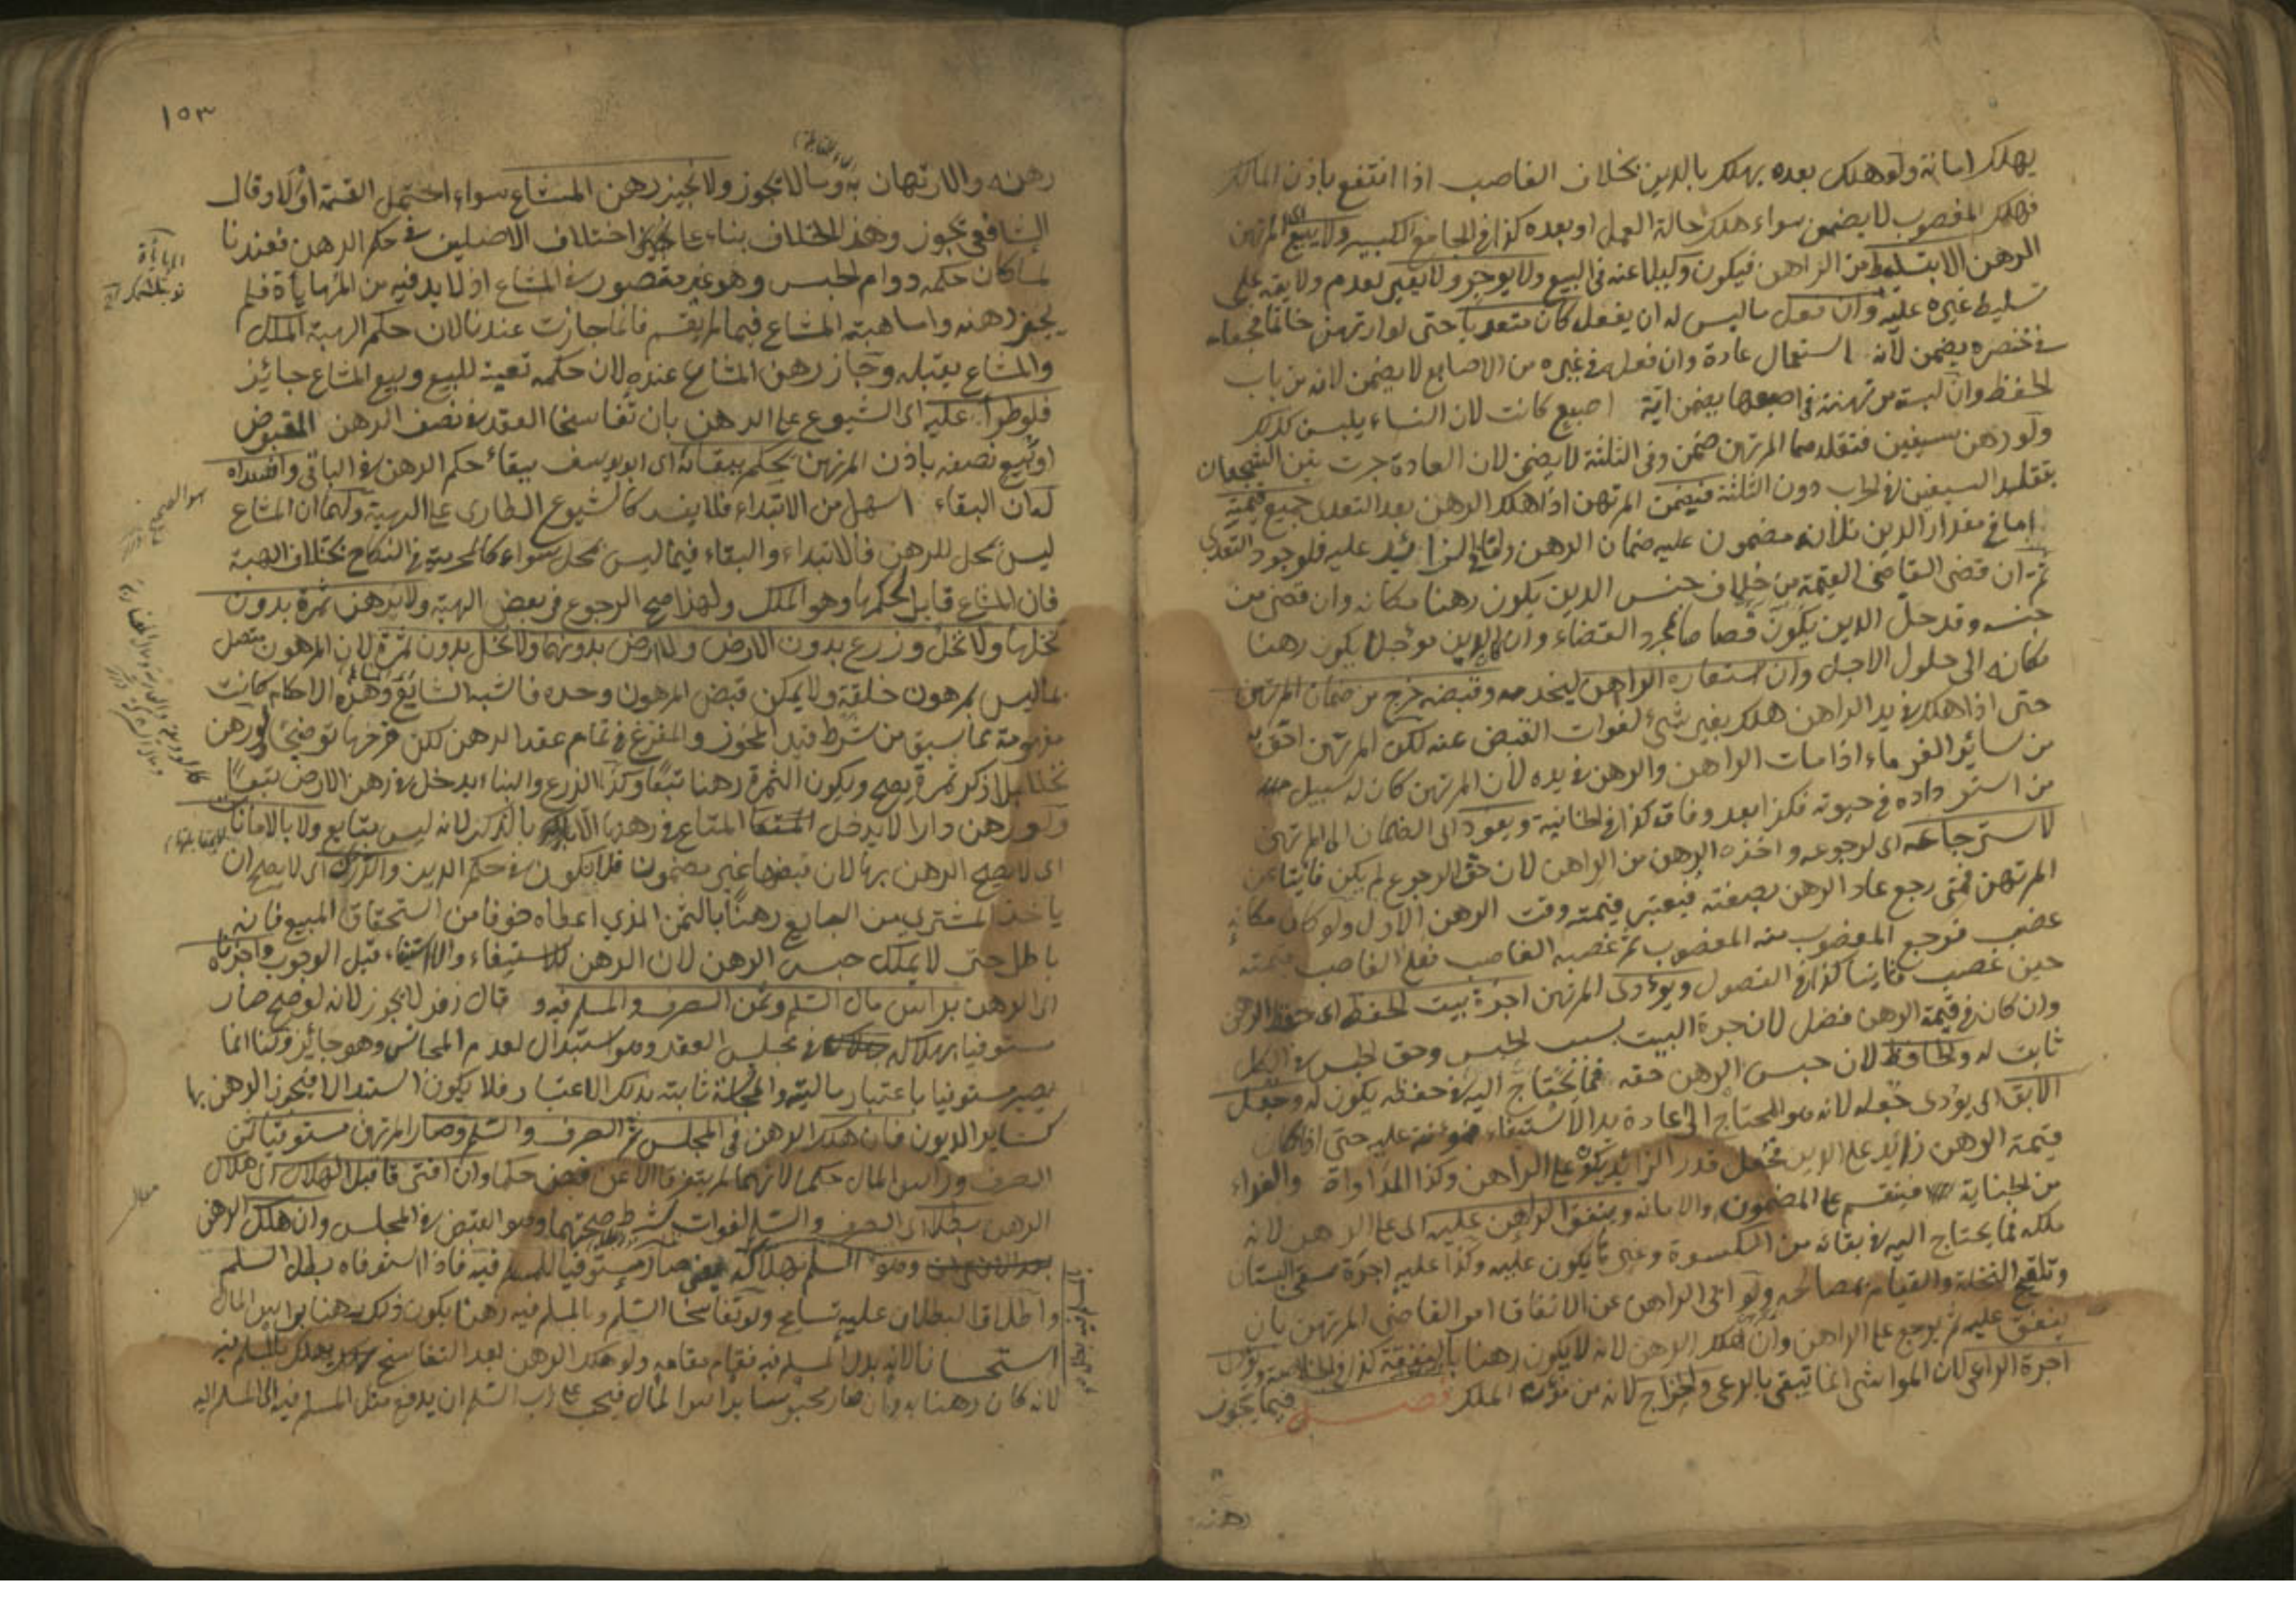 يهلك امانة ولو هلك بعده يهلك بالدين بخلاف الغاصب اذا انتفع باذن المالك
فهلك المغصوب لا يضمن سواء هلك حالة العمل او بعده كذا في الجامع الكبير ولا يبيع المرتهن
الرهن الا بتسليط من الراهن فيكون وكيلا عنه في البيع ولا يوجر ولا يعير لعدم ولايته على
تسليط غيره عليه وان فعل ما ليس له ان يفعل كان متعديا حتى لو ارتهن خاتما فجعله
في خنصره يضمن لانه استعمال عادة وان فعل في غيره من الاصابع لا يضمن لانه من باب
الحفظ وان لبسته مرتهنة في اصبعها يضمن اية اصبع كانت لان النساء يلبسن كذلك
ولو رهن سيفين فتقلدهما المرتهن ضمن وفي الثلثة لا يضمن لان العادة جرت بين الشجعان
بتقليد السيفين في الحرب دون الثلثة فيضمن المرتهن اذا هلك الرهن بعد التعدي جميع قيمته
اما في مقدار الدين فلانه مضمون عليه ضمان الرهن واما في الزائد عليه فلوجود التعدي
ثم ان قضى القاضي القيمة من خلاف جنس الدين يكون رهنا مكانه وان قضى من
جنسه وقد حل الدين يكون قصاصا بمجرد القضاء وان كان الدين موجلا يكون رهنا
مكانه الى حلول الاجل وان استعاره الراهن ليخدمه وقبضه خرج من ضمان المرتهن
حتى اذا هلك في يد الراهن هلك بغير شيء لفوات القبض عنه لكن المرتهن احق به
من سائر الغرماء اذا مات الراهن والرهن في يده لان المرتهن كان له سبيل
من استرداده في حيوته فكذا بعد وفاته كذا في الخانية ويعود اي الضمان الى المرتهن
لاسترجاعه اي لرجوعه واخذه الرهن من الراهن لان حق الرجوع لم يكن فائتا عن
المرتهن فمتى رجع عاد الرهن بصفته فيعتبر قيمته وقت الرهن الاول ولو كان مكانه
غصب فرجع المغصوب منه المغصوب ثم غصبه الغاصب فعلى الغاصب قيمته
حين غصب ثانيا كذا في الفصول ويؤدي المرتهن اجرة بيت الحفظ اي حفظ الرهن
وان كان في قيمة الرهن فضل لان جرة البيت بسبب الحبس وحق الحبس في الكل
ثابت له والحافظ لان حبس الرهن حقه فما يحتاج اليه في حفظه يكون له وجعل
الآبق اي يؤدي جعله لانه هو المحتاج الى اعادة يد الاستيفاء فمؤنته عليه حتى اذا كان
قيمة الرهن زائد على الدين فجعل قدر الزائد يكون على الراهن وكذا المداواة والفداء
من الجناية فينقسم على المضمون والامانة وينفق الراهن عليه اي على الرهن لانه
ملكه فما يحتاج اليه في بقائه من الكسوة وغيرها يكون عليه وكذا عليه اجرة سقي البستان
وتلقيح النخلة والقيام بمصالحه ولو ابى الراهن عن الانفاق امر القاضي المرتهن بان
ينفق عليه ثم يرجع على الراهن وان هلك الرهن لانه لا يكون رهنا بالنفقة كذا في الخلاصة ويؤدي
اجرة الراعي لان المواشي انما تبقى بالرعي والخراج لانه من مؤنة الملك فصل فيما يجوز
رهنه
١٥٣
رهنه والارتهان به وما لا يجوز ولا يجيز رهن المشاع سواء احتمل القسمة او لا وقال
الشافعي يجوز وهذا الخلاف بناء على اختلاف الاصلين في حكم الرهن فعندنا
لما كان حكمه دوام الحبس وهو غير مقصور في المشاع اذ لا بد فيه من المهاياة فلم
يجز رهنه واما هبة المشاع فيما لم يقسم فانما جازت عندنا لان حكم الهبة الملك
والمشاع يقبله وجاز رهن المشاع عنده لان حكمه تعينه للبيع وبيع المشاع جائز
فلو طرأ عليه اي الشيوع على الرهن بان تفاسخا العقد في نصف الرهن المقبوض
او بيع نصفه باذن المرتهن يحكم ببقائه اي ابو يوسف ببقاء حكم الرهن في الباقي وافسداه
له ان البقاء اسهل من الابتداء فلا يفسد كالشيوع الطاري على الهبة ولهما ان المشاع
ليس بمحل للرهن فالابتداء والبقاء فيما ليس بمحل سواء كالمحرمية في النكاح بخلاف الهبة
فان المشاع قابل لحكمها وهو الملك ولهذا صح الرجوع في بعض الهبة ولا يرهن ثمرة بدون
نخلها ولا نخل وزرع بدون الارض والارض بدونهما ولا نخل بدون ثمرة لان المرهون متصل
بما ليس بمرهون خلقة ولا يمكن قبض المرهون وحده فاشبه الشائع وهذه الاحكام كانت
مفهومة مما سبق من شرط قيد المحوز والمفرغ في تمام عقد الرهن لكن فرعها توضيحا ولو رهن
نخلا بلا ذكر ثمرة يصح ويكون الثمرة رهنا تبعا وكذا الزرع والبناء يدخل في رهن الارض تبعا
ولو رهن دارا لا يدخل المتاع في رهنها الا بالذكر لانه ليس بتابع ولا بالامانات
اي لا يصح الرهن بها لان قبضها غير مضمون فلا يكون في حكم الدين والدرك اي لا يصح ان
ياخذ المشتري من البايع رهنا بالثمن الذي اعطاه خوفا من استحقاق المبيع فانه
باطل حتى لا يملك حبس الرهن لان الرهن للاستيفاء ولا استيفاء قبل الوجوب واجزناه
اي الرهن براس مال السلم وثمن الصرف والمسلم فيه وقال زفر لا يجوز لانه لو صح صار
مستوفيا بهلاكه في مجلس العقد وهو استبدال لعدم المجانس وهو جائز وقلنا انما
يصير مستوفيا باعتبار ماليته والمجانسة ثابتة بذلك الاعتبار فلا يكون استبدالا فيجوز الرهن بها
كسائر الديون فان هلك الرهن في المجلس تم الصرف والسلم وصار المرتهن مستوفيا ثمن
الصرف وراس المال حكما لانهما لم يتفرقا الا عن قبض حكما وان افترقا قبل الهلاك اي هلاك
الرهن بطلا اي الصرف والسلم لفوات شرط صحتهما وهو القبض في المجلس وان هلك الرهن
السلم بهلاكه صار مستوفيا للمسلم فيه فاذا استوفاه بطل السلم
واطلاق البطلان عليه تسامح ولو تفاسخا السلم وبالمسلم فيه رهن يكون ذلك رهنا براس المال
استحسانا لانه بدل المسلم فيه فقام مقامه ولو هلك الرهن بعد التفاسخ يهلك بالمسلم فيه
لانه كان رهنا به وان صار محبوسا براس المال فيجب على رب السلم ان يدفع مثل المسلم فيه الى المسلم اليه